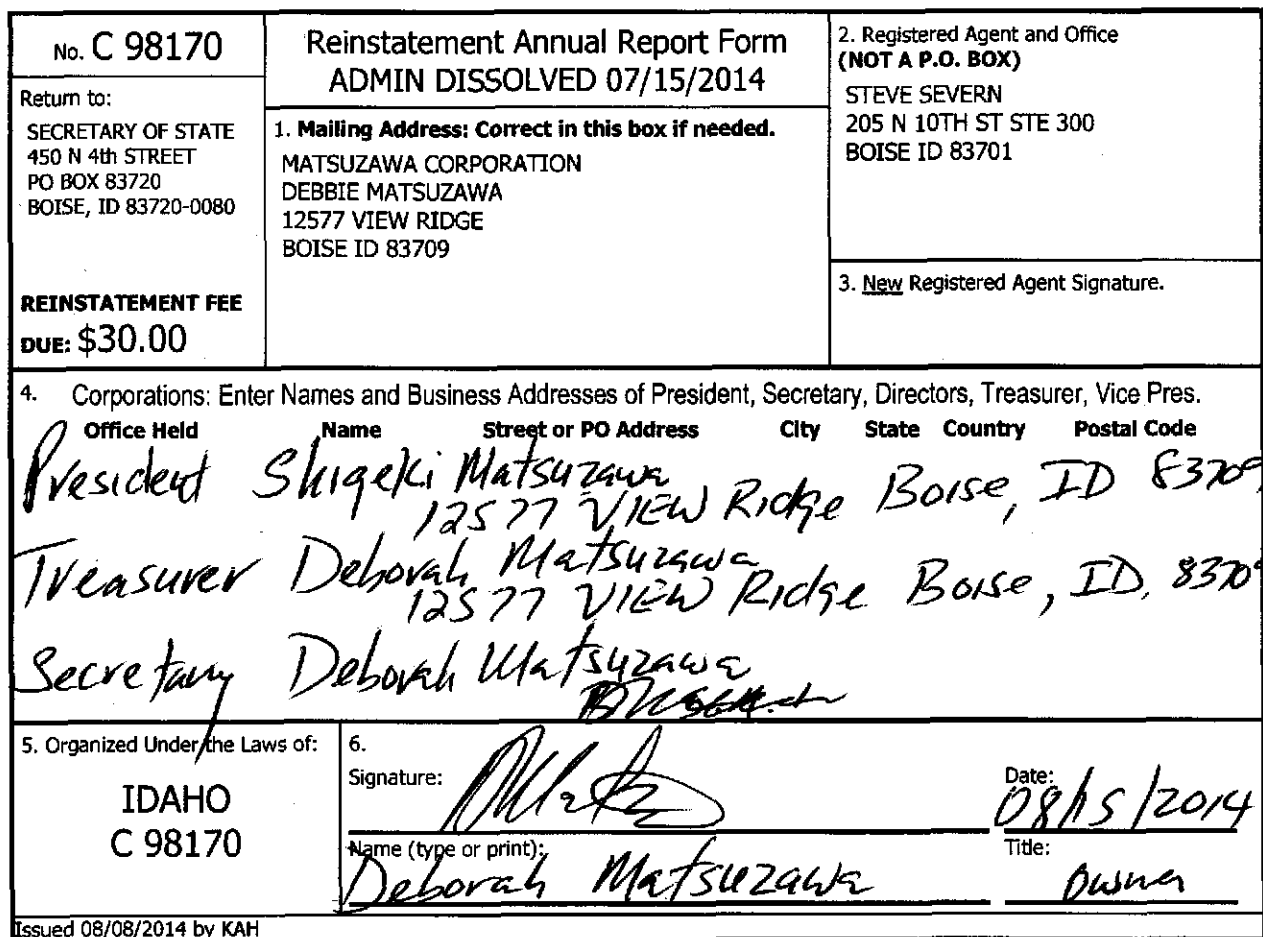 No. C 98170
Return to:
SECRETARY OF STATE
450 N 4th STREET
PO BOX 83720
BOISE, ID 83720-0080
REINSTATEMENT FEE
DUE: $30.00
Reinstatement Annual Report Form
ADMIN DISSOLVED 07/15/2014
1. Mailing Address: Correct in this box if needed.
MATSUZAWA CORPORATION
DEBBIE MATSUZAWA
12577 VIEW RIDGE
BOISE ID 83709
2. Registered Agent and Office
(NOT A P.O. BOX)
STEVE SEVERN
205 N 10TH ST STE 300
BOISE ID 83701
3. New Registered Agent Signature.
4. Corporations: Enter Names and Business Addresses of President, Secretary, Directors, Treasurer, Vice Pres.
Office Held Name Street or PO Address City State Country Postal Code
President Shigeki Matsuzawa
12577 VIEW Ridge Boise, ID 83709
Treasurer Deborah Matsuzawa
12577 VIEW Ridge Boise, ID, 83709
Secretary Deborah Matsuzawa
5. Organized Under the Laws of:
IDAHO
C 98170
6.
Signature:
Date:
08/15/2014
Name (type or print):
Deborah Matsuzawa
Title:
Owner
Issued 08/08/2014 by KAH